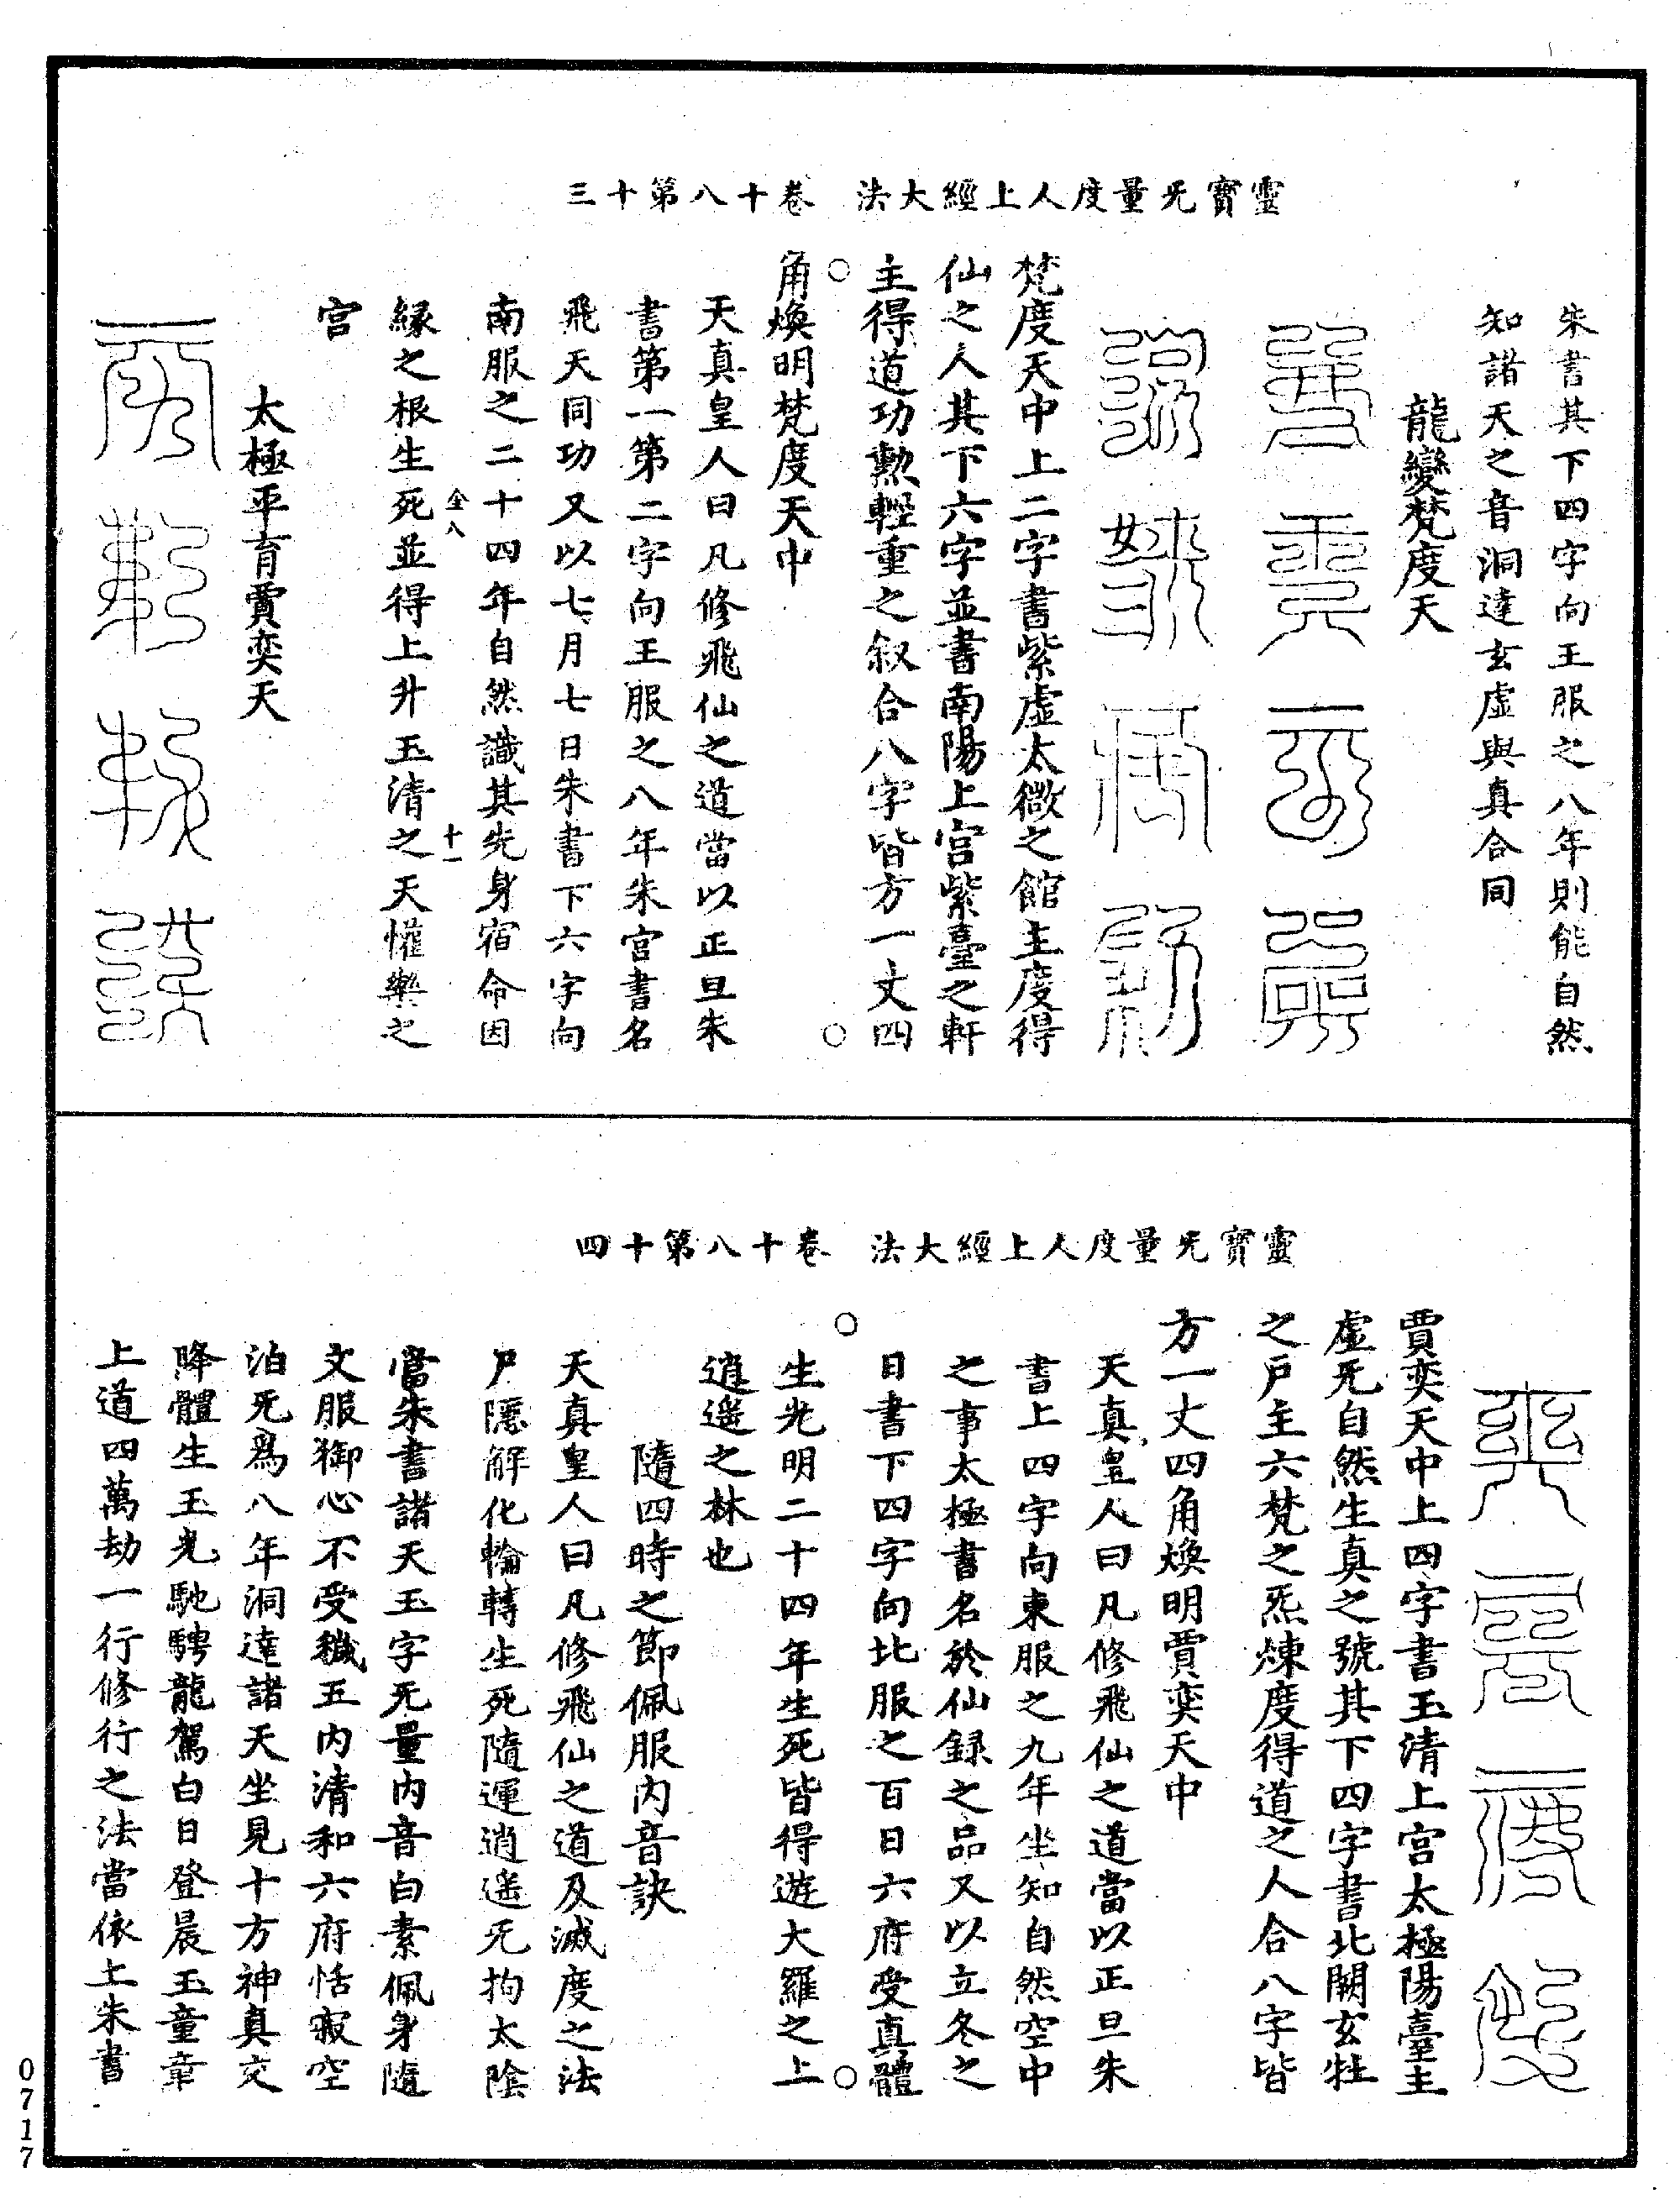 靈寶旡量度人上經大法　卷十八第十三
朱書其下四字向王服之八年則能自然
知諸天之音洞達玄虛與真合同
龍變梵度天
梵度天中上二字書紫虛太微之館主度得
仙之人其下六字並書南陽上宮紫臺之軒
主得道功勲輕重之叙合八字皆方一丈四
角煥明梵度天中
天真皇人曰凡修飛仙之道當以正旦朱
書第一第二字向王服之八年朱宮書名
飛天同功又以七月七日朱書下六字向
南服之二十四年自然識其先身宿命因
全八　十一
緣之根生死並得上升玉清之天懽樂之
宮
太極平育賈奕天
靈寶旡量度人上經大法　卷十八第十四
賈奕天中上四字書玉清上宮太極陽臺主
虛旡自然生真之號其下四字書北闕玄牡
之戶主六梵之炁煉度得道之人合八字皆
方一丈四角煥明賈奕天中
天真皇人曰凡修飛仙之道當以正旦朱
書上四字向東服之九年坐知自然空中
之事太極書名於仙録之品又以立冬之
日書下四字向北服之百日六府受真體
生光明二十四年生死皆得遊大羅之上
逍遙之林也
隨四時之節佩服內音訣
天真皇人曰凡修飛仙之道及滅度之法
尸隱解化輪轉生死隨運逍遙旡拘太陰
當朱書諸天玉字旡量內音白素佩身隨
文服御心不受穢五內清和六府恬寂空
泊旡為八年洞達諸天坐見十方神真交
降體生玉光馳騁龍駕白日登晨玉童章
上道四萬劫一行修行之法當依上朱書
0717